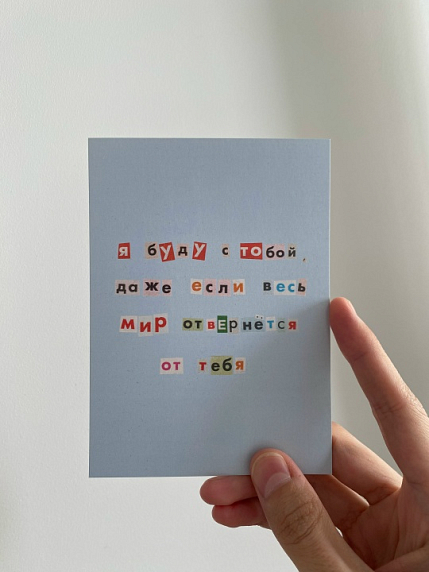 я буду с тобой,
даже если весь
мир отвернётся
от тебя